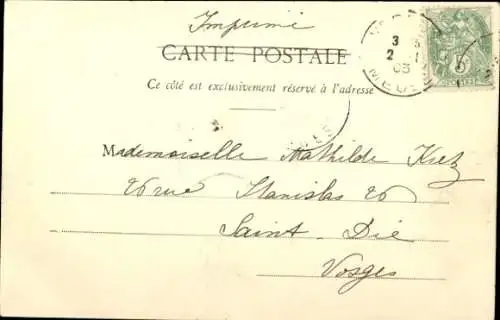 Imprimé
CARTE POSTALE
Ce côté est exclusivement réservé à l'adresse
3
2
03
Mademoiselle Mathilde Kretz
26 rue Stanislas 26
Saint-Dié
Vosges